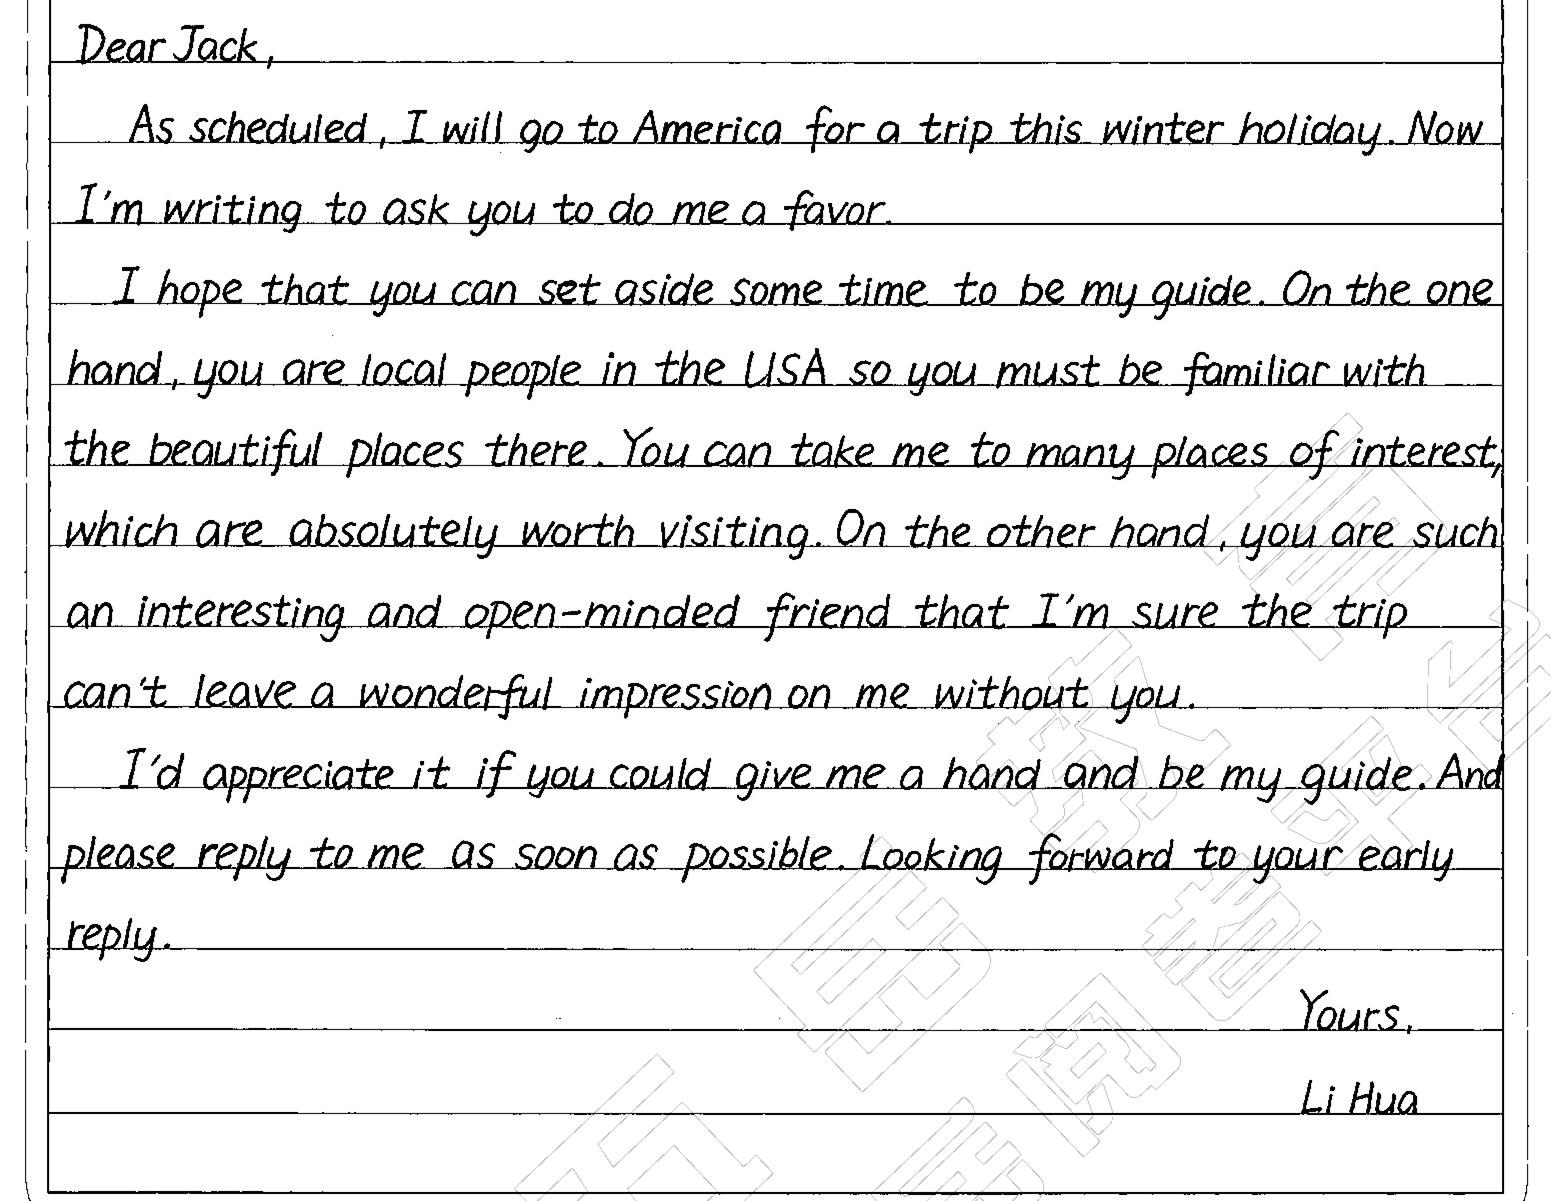 Dear Jack,
As scheduled, I will go to America for a trip this winter holiday. Now
I'm writing to ask you to do me a favor.
I hope that you can set aside some time to be my guide. On the one
hand, you are local people in the USA so you must be familiar with
the beautiful places there. You can take me to many places of interest,
which are absolutely worth visiting. On the other hand, you are such
an interesting and open-minded friend that I'm sure the trip
can't leave a wonderful impression on me without you.
I'd appreciate it if you could give me a hand and be my guide. And
please reply to me as soon as possible. Looking forward to your early
reply.
Yours,
Li Hua